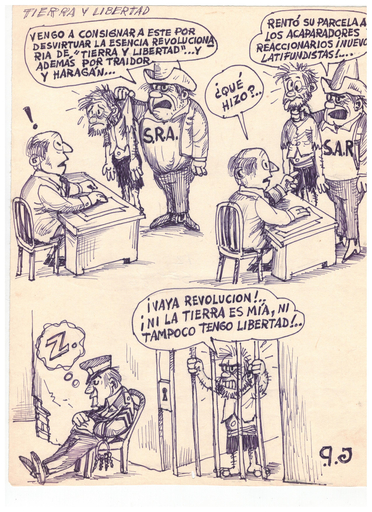 TIERRA Y LIBERTAD
VENGO A CONSIGNAR A ESTE POR
DESVIRTUAR LA ESENCIA REVOLUCIONA
RIA DE "TIERRA Y LIBERTAD"...Y
ADEMAS POR TRAIDOR
Y HARAGÁN...
!
S.R.A.
RENTÓ SU PARCELA A
LOS ACAPARADORES
REACCIONARIOS ¡NUEVO
LATIFUNDISTAS!....
¿QUÉ
HIZO?..
S.A.R
Z
¡VAYA REVOLUCION!..
¡NI LA TIERRA ES MÍA, NI
TAMPOCO TENGO LIBERTAD!..